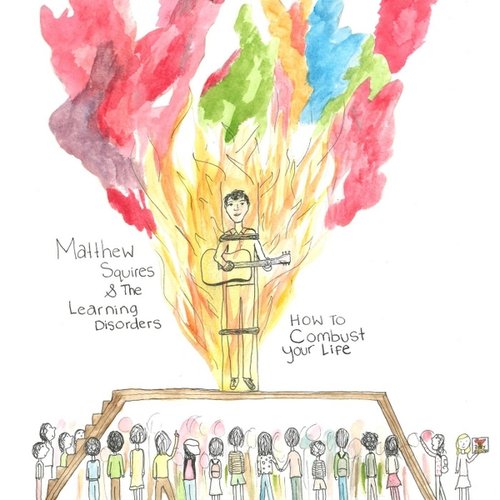 Matthew
Squires
& The
Learning
Disorders
HOW TO
Combust
your Life